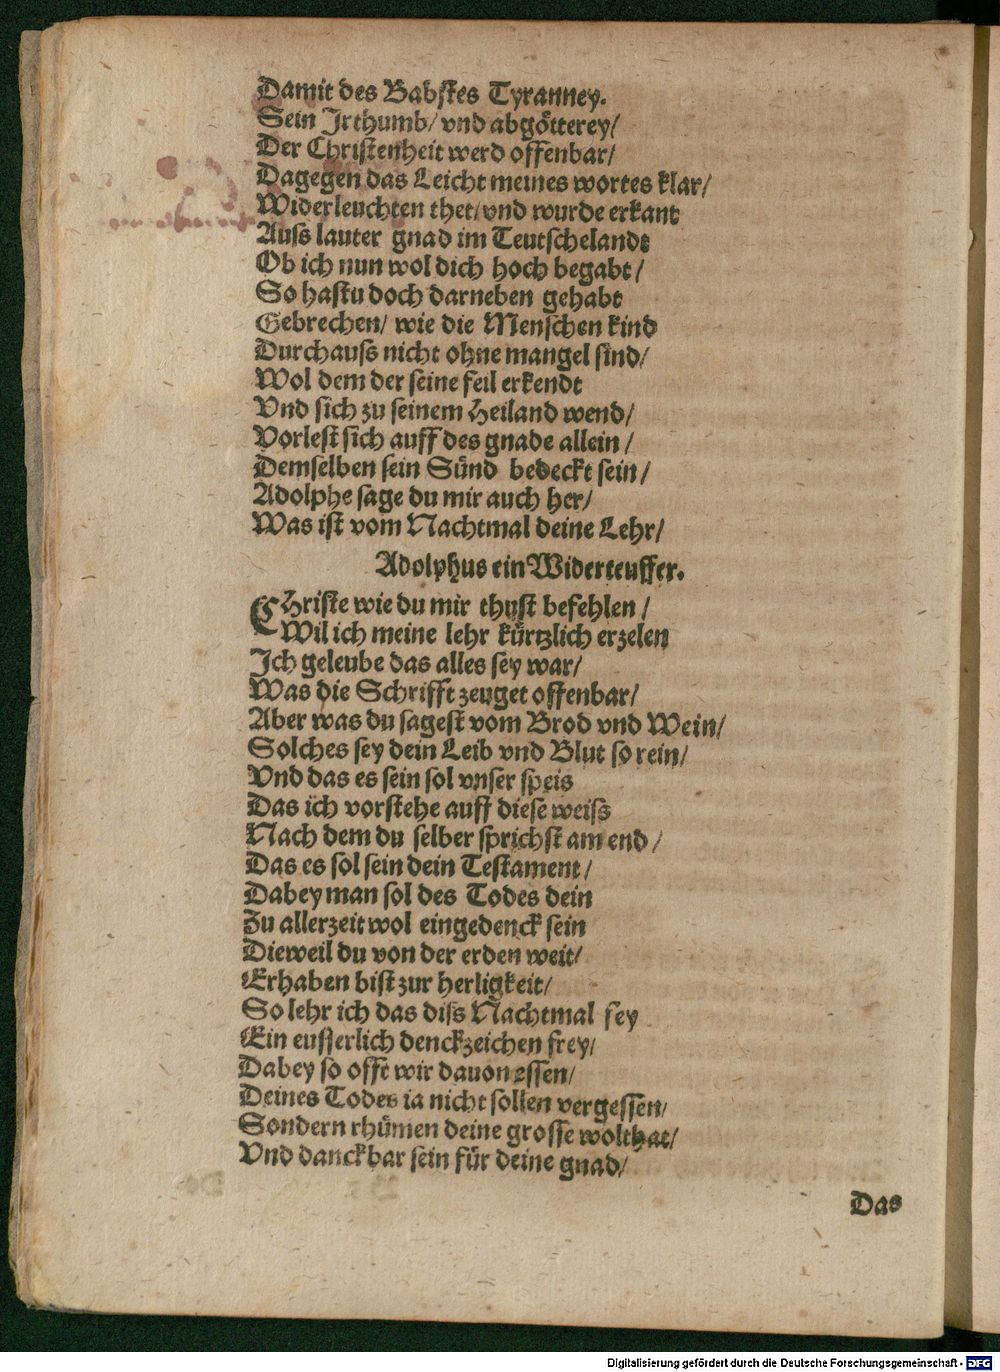 Damit des Babstes Tyranney.
Sein Jrthumb/ vnd abgötterey/
Der Christenheit werd offenbar/
Dagegen das Leicht meines wortes klar/
Widerleuchten thet/ vnd wurde erkant
Auss lauter gnad im Teutschelandt
Ob ich nun wol dich hoch begabt/
So hastu doch darneben gehabt
Gebrechen/ wie die Menschen kind
Durchauss nicht ohne mangel sind/
Wol dem der seine feil erkendt
Vnd sich zu seinem Heiland wend/
Vorlest sich auff des gnade allein/
Demselben sein Sünd bedeckt sein/
Adolphe sage du mir auch her/
Was ist vom Nachtmal deine Lehr/
Adolphus ein Widerteuffer.
CHriste wie du mir thust befehlen/
Wil ich meine lehr kürtzlich erzelen
Ich geleube das alles sey war/
Was die Schrifft zeuget offenbar/
Aber was du sagest vom Brod vnd Wein/
Solches sey dein Leib vnd Blut so rein/
Vnd das es sein sol vnser speis
Das ich vorstehe auff diese weiss
Nach dem du selber sprichst am end/
Das es sol sein dein Testament/
Dabey man sol des Todes dein
Zu allerzeit wol eingedenck sein
Dieweil du von der erden weit/
Erhaben bist zur herligkeit/
So lehr ich das diss Nachtmal sey
Ein eusserlich denckzeichen frey/
Dabey so offt wir dauon essen/
Deines Todes ia nicht sollen vergessen/
Sondern rhümen deine grosse wolthat/
Vnd danckbar sein für deine gnad/
Das
Digitalisierung gefördert durch die Deutsche Forschungsgemeinschaft - DFG